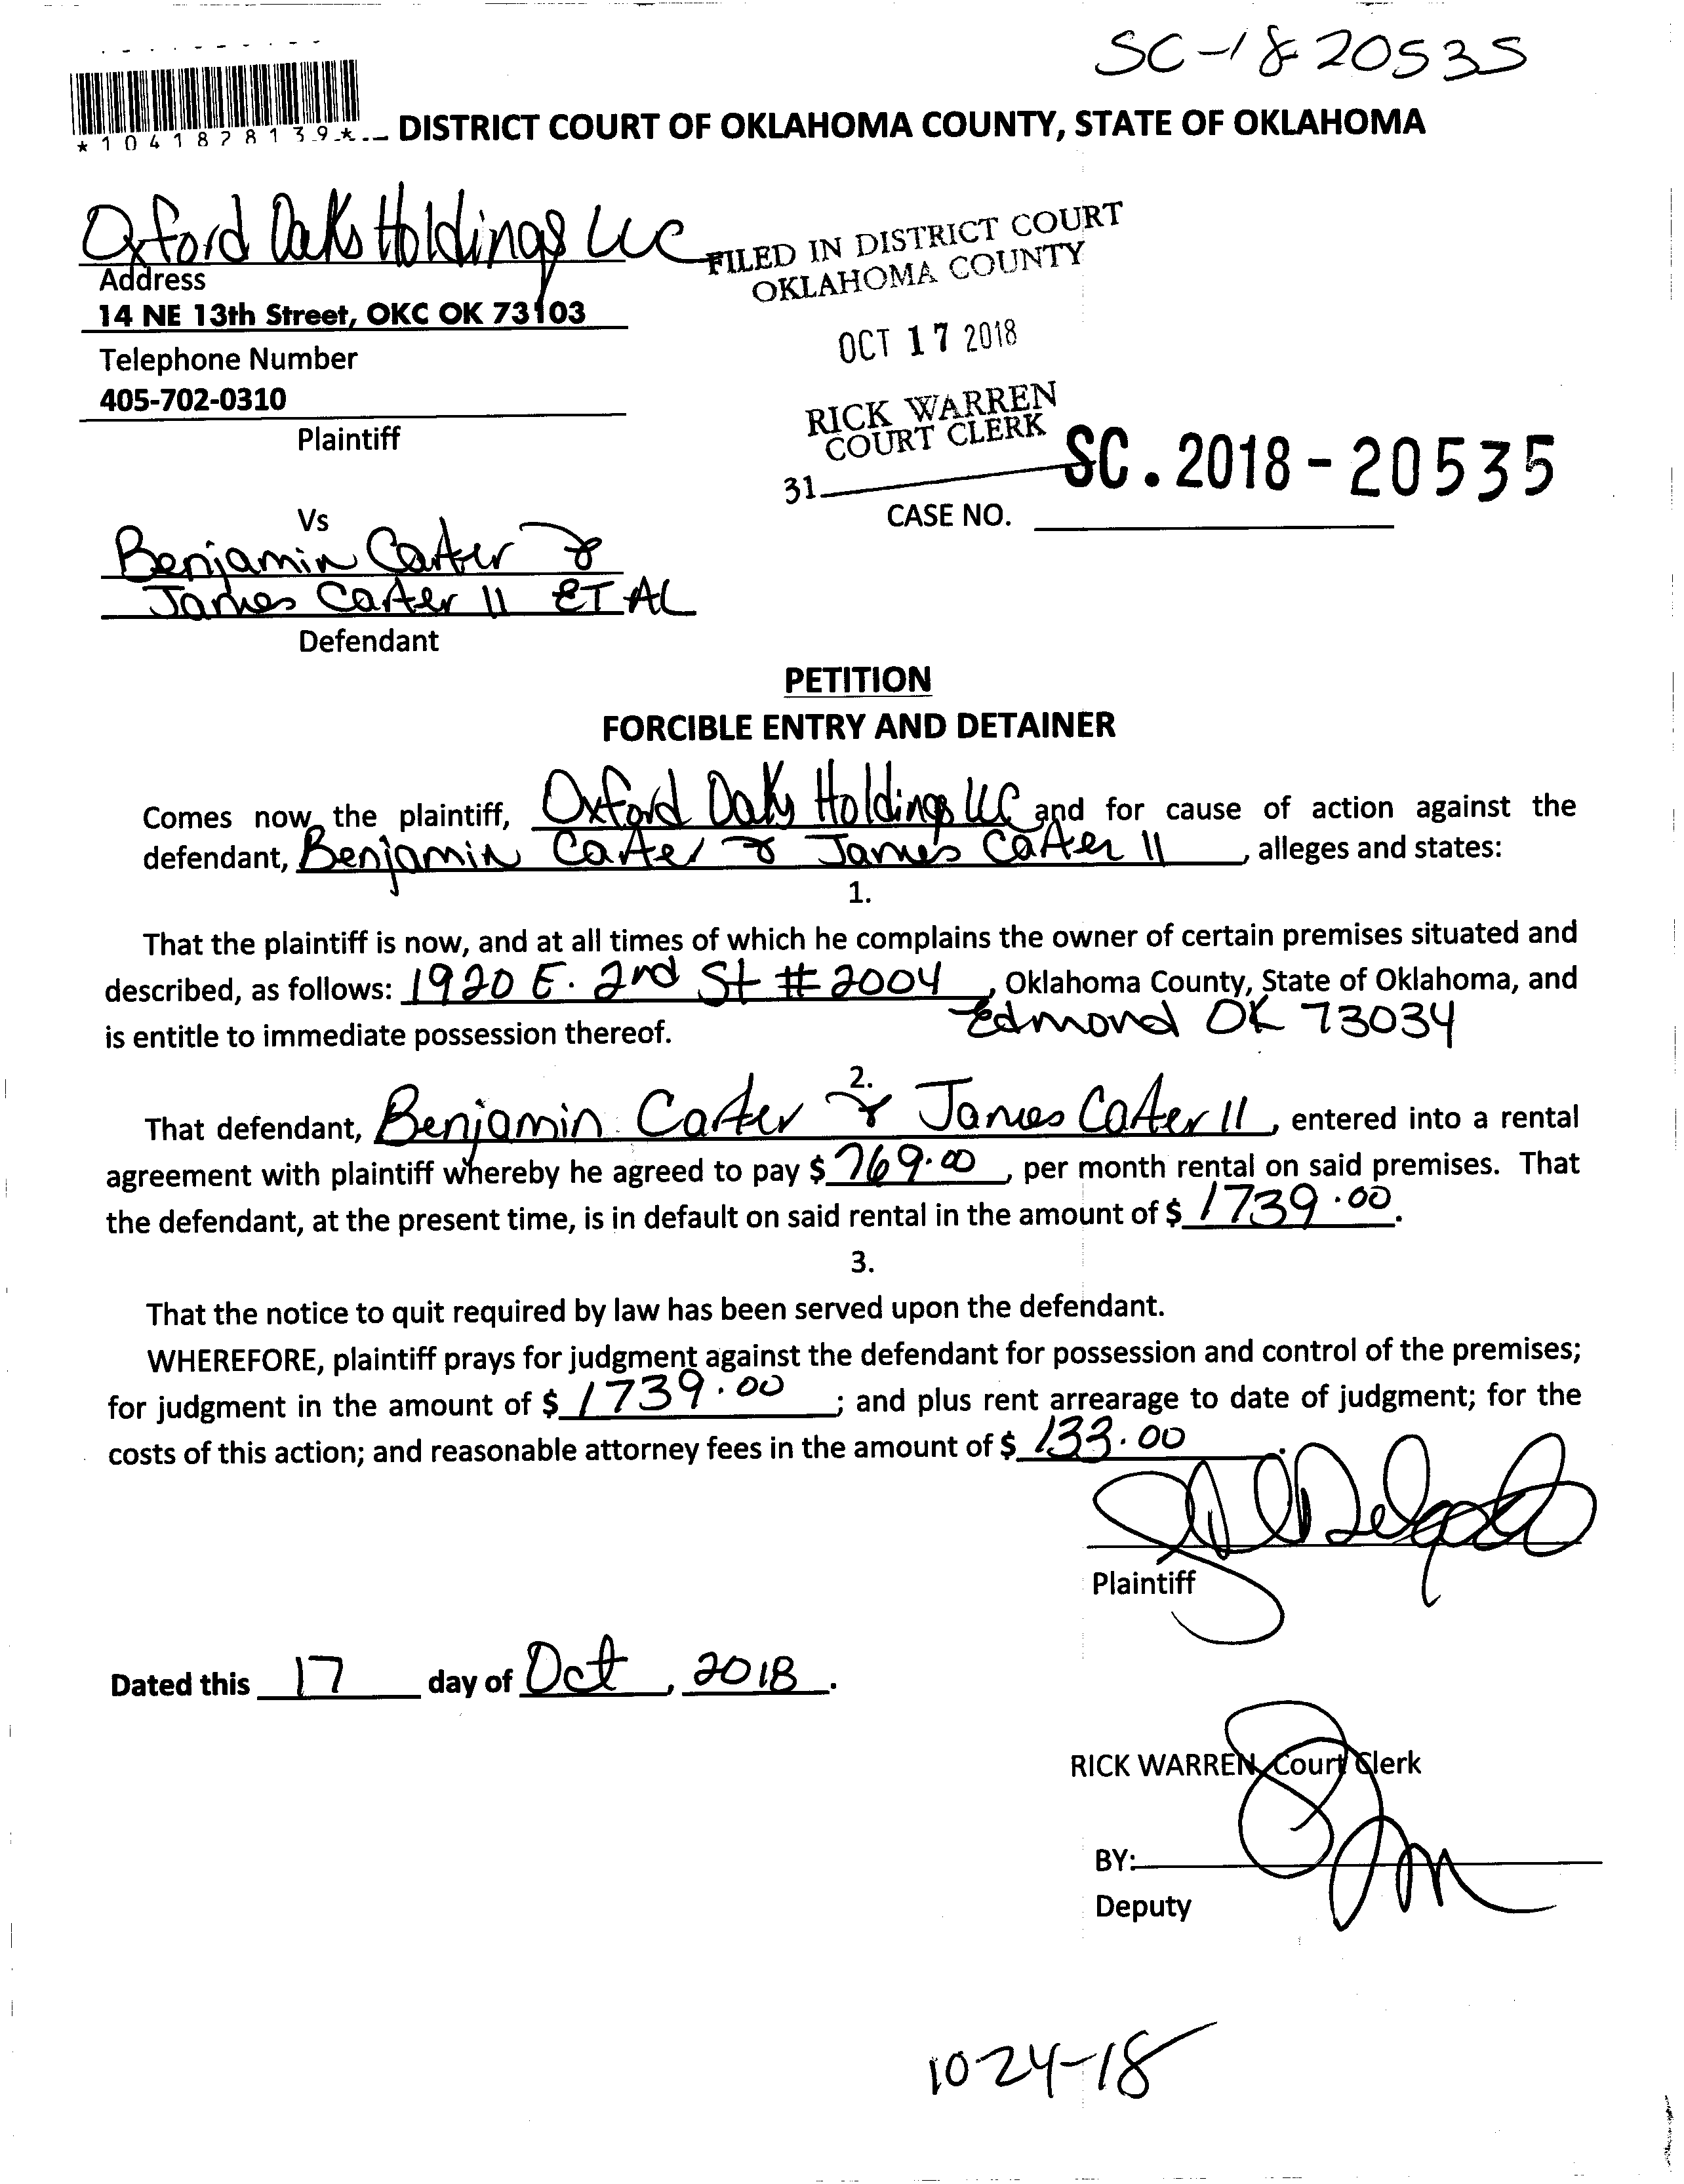 SC-18 20535
*1041828139*
DISTRICT COURT OF OKLAHOMA COUNTY, STATE OF OKLAHOMA
Oxford Oaks Holdings LLC
Address
14 NE 13th Street, OKC OK 73103
Telephone Number
405-702-0310
Plaintiff
FILED IN DISTRICT COURT
OKLAHOMA COUNTY
OCT 17 2018
RICK WARREN
COURT CLERK
31
SC. 2018-20535
CASE NO.
Vs
Benjamin Carter &
James Carter II ET AL
Defendant
PETITION
FORCIBLE ENTRY AND DETAINER
Comes now the plaintiff, Oxford Oaks Holdings LLC and for cause of action against the
defendant, Benjamin Carter & James Carter II, alleges and states:
1.
That the plaintiff is now, and at all times of which he complains the owner of certain premises situated and
described, as follows: 1920 E. 2nd St # 2004, Oklahoma County, State of Oklahoma, and
Edmond OK 73034
is entitle to immediate possession thereof.
2.
That defendant, Benjamin Carter & James Carter II, entered into a rental
agreement with plaintiff whereby he agreed to pay $ 769.00, per month rental on said premises. That
the defendant, at the present time, is in default on said rental in the amount of $ 1739.00.
3.
That the notice to quit required by law has been served upon the defendant.
WHEREFORE, plaintiff prays for judgment against the defendant for possession and control of the premises;
for judgment in the amount of $ 1739.00; and plus rent arrearage to date of judgment; for the
costs of this action; and reasonable attorney fees in the amount of $ 133.00.
Plaintiff
Dated this 17 day of Oct, 2018.
RICK WARREN, Court Clerk
BY:
Deputy
10-24-18